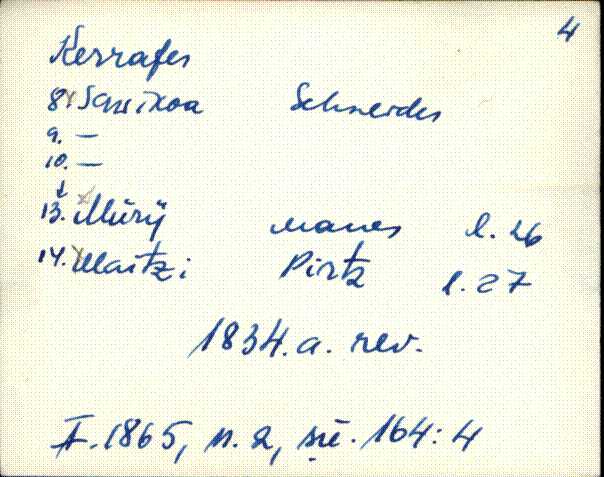 4
Kerrafer
8. Sawikoa Schneider
9. —
10. —
↓
13. Mürÿ manes l. 26
14. Maitzi Pirtz l. 27
1834. a. rev.
F. 1865, n. 2, sü. 164:4